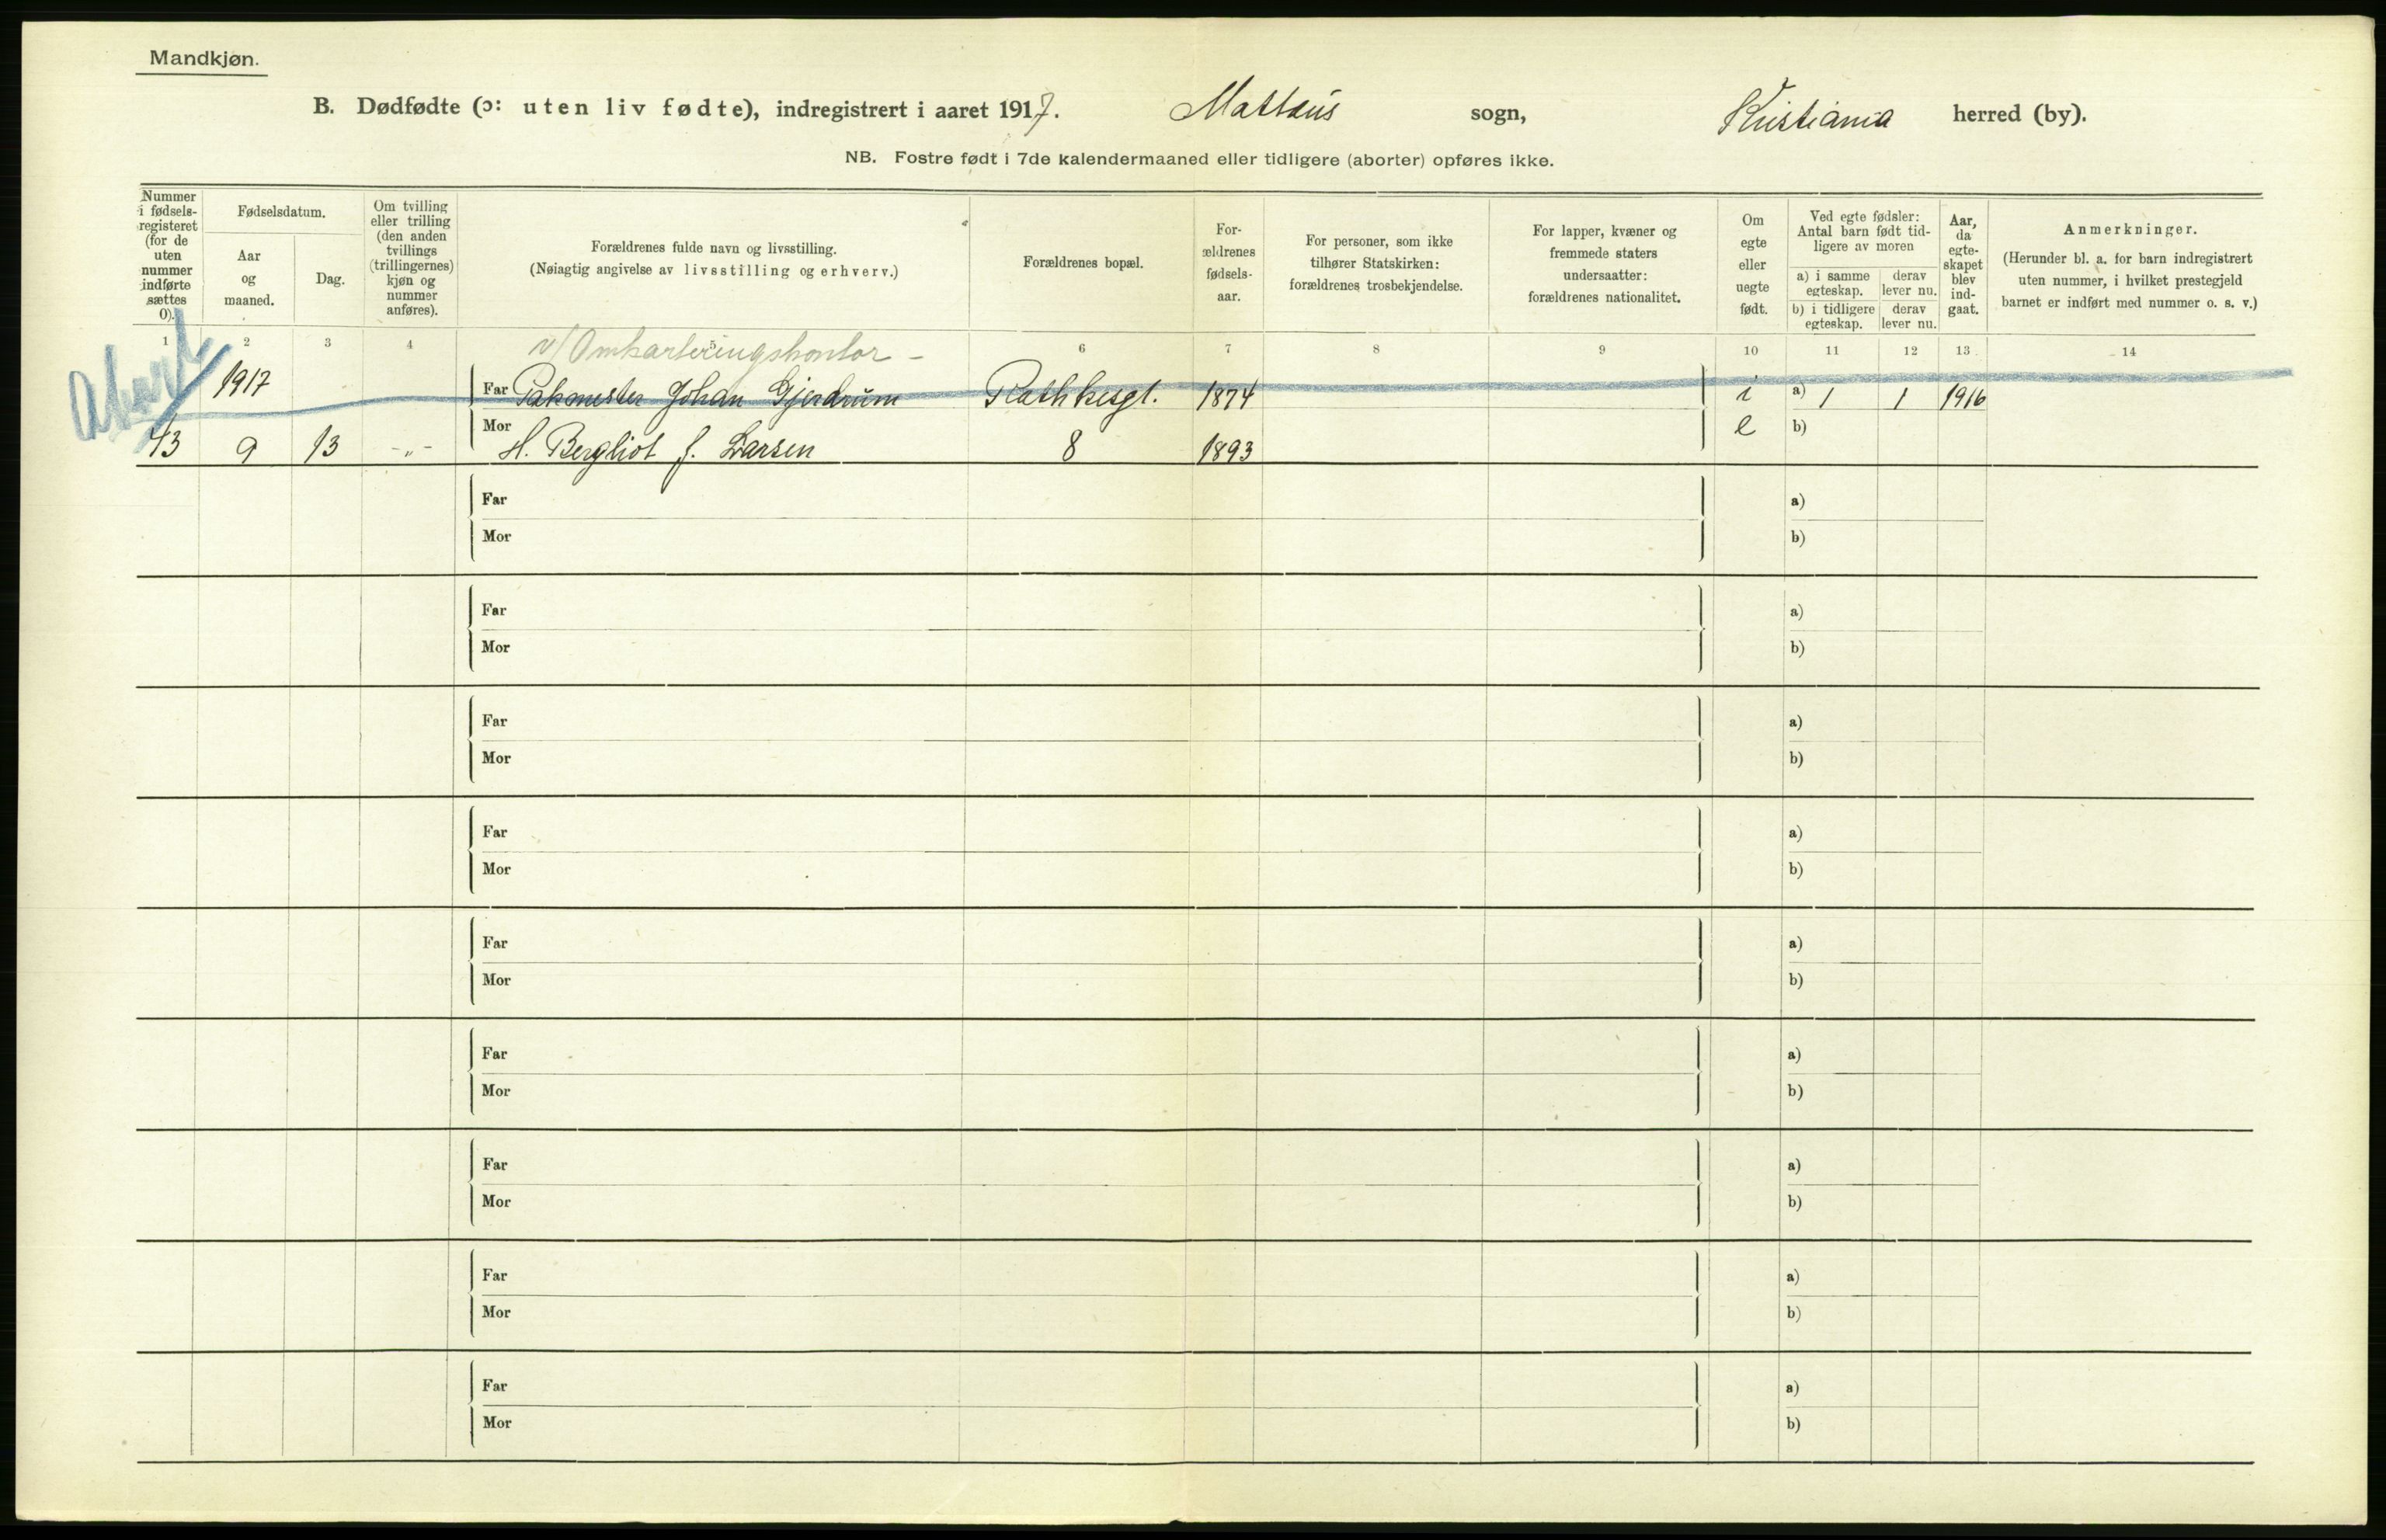 Mandkjøn.
B. Dødfødte (ɔ: uten liv fødte), indregistrert i aaret 1917. Mattæus sogn, Kristiania herred (by).
NB. Fostre født i 7de kalendermaaned eller tidligere (aborter) opføres ikke.
Nummer i fødsels-registeret (for de uten nummer indførte sættes 0).
Fødselsdatum.
Aar og maaned.
Dag.
Om tvilling eller trilling (den anden tvillings (trillingernes) kjøn og nummer anføres).
Forældrenes fulde navn og livsstilling.
(Nøiagtig angivelse av livsstilling og erhverv.)
Forældrenes bopæl.
For-ældrenes fødsels-aar.
For personer, som ikke tilhører Statskirken: forældrenes trosbekjendelse.
For lapper, kvæner og fremmede staters undersaatter: forældrenes nationalitet.
Om egte eller uegte født.
Ved egte fødsler: Antal barn født tid-ligere av moren
a) i samme egteskap.
derav lever nu.
b) i tidligere egteskap.
derav lever nu.
Aar, da egte-skapet blev ind-gaat.
Anmerkninger.
(Herunder bl. a. for barn indregistrert uten nummer, i hvilket prestegjeld barnet er indført med nummer o. s. v.)
1 2 3 4 5 6 7 8 9 10 11 12 13 14
v/Omkarteringskontor -
1917 Far Pakmester Johan Gjerdrum Rathkesgt. 1874 i a) 1 1 1916
43 9 13 -„- Mor H. Bergliot f. Larsen 8 1893 e b)
Far a)
Mor b)
Far a)
Mor b)
Far a)
Mor b)
Far a)
Mor b)
Far a)
Mor b)
Far a)
Mor b)
Far a)
Mor b)
Far a)
Mor b)
Far a)
Mor b)